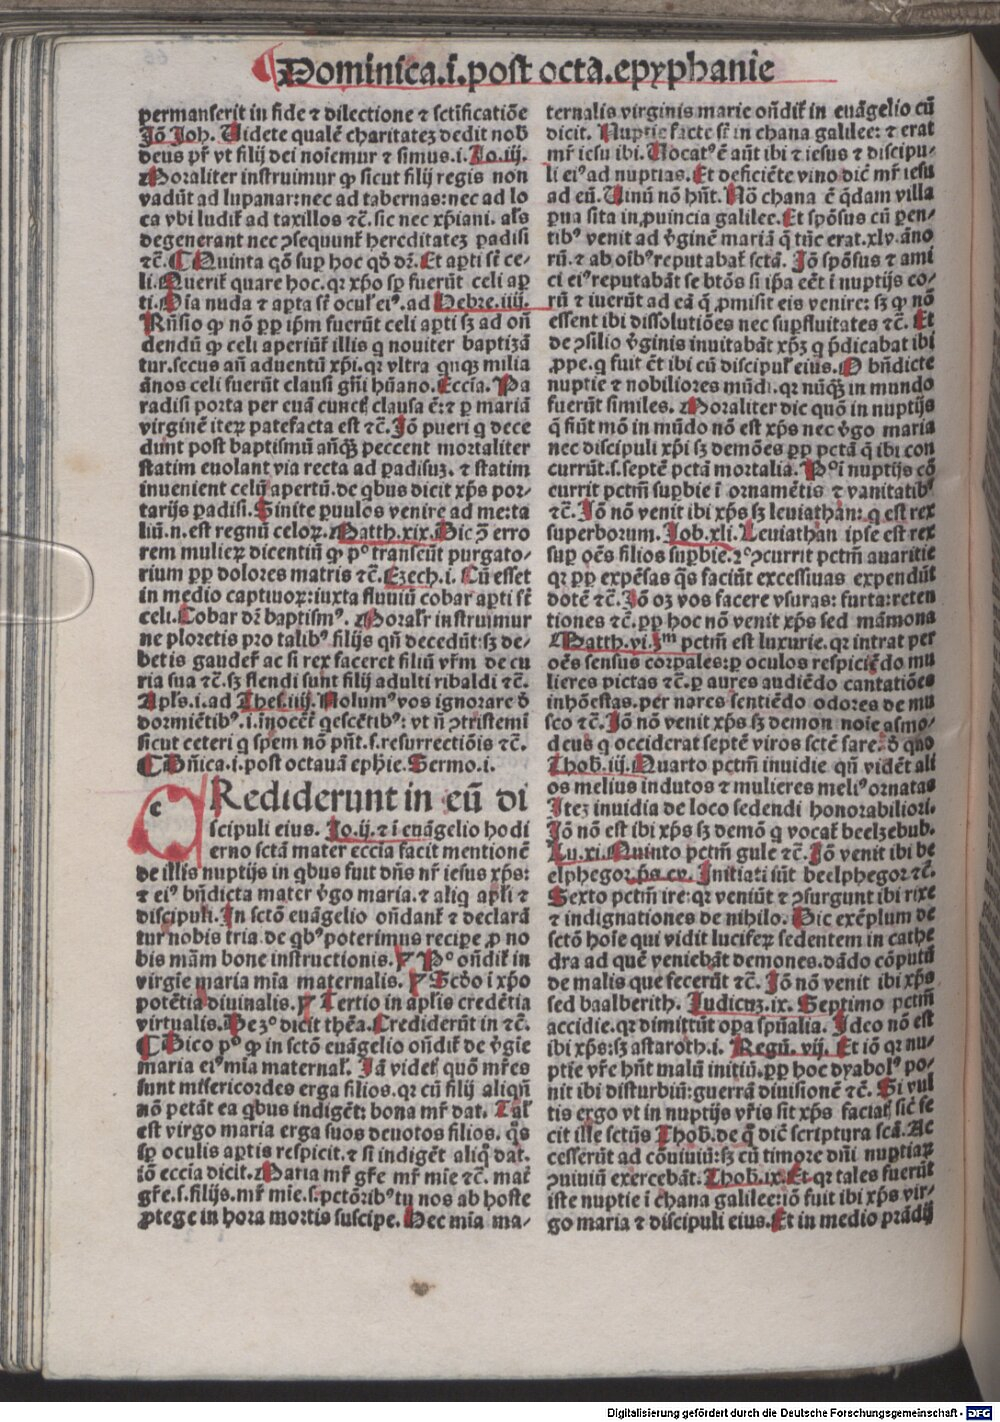 Dominica.i.post octa.epyphanie
permanserit in fide ⁊ dilectione ⁊ sctificatiōe
Jō Joh. Uidete qualē charitatez dedit nob
deus pr̄ vt filij dei noīemur ⁊ simus.i.Jo.iij.
Moraliter instruimur ꝙ sicut filij regis non
vadūt ad lupanar:nec ad tabernas:nec ad lo
ca vbi ludit̄ ad taxillos ⁊c̄. sic nec xp̄iani. als̄
degenerant nec ɔsequunt̄ hereditatez padisi
⁊c̄. Quinta qō sup hoc qd̓ dr̄. Et apti st̄ ce-
li. Querit̄ quare hoc.qr xp̄o sp̄ fuerūt celi ap
ti. Oīa nuda ⁊ apta st̄ ocul̓ ei⁹.ad Hebre.iiij.
Rn̄sio ꝙ nō pp ip̄m fuerūt celi apti sꝫ ad on̄
dendū ꝙ celi aperiūt̄ illis q nouiter baptizā
tur.secus an̄ aduentū xp̄i.qr vltra qnqꝫ milia
ānos celi fuerūt clausi gn̄i hūano. Eccīa. Pa
radisi porta per euā cunct̓ clausa ē:⁊ p mariā
virginē iteꝝ patefacta est ⁊c̄. Jō pueri q dece
dunt post baptismū anq̄ꝫ peccent mortaliter
statim euolant via recta ad padisuꝫ. ⁊ statim
inuenient celū apertū.de qbus dicit xp̄s por-
tarijs padisi. Sinite puulos venire ad me:ta
liū.n.est regnū celoꝝ. Matth.xix. Dic ɔ̄ erro
rem mulieꝝ dicentiū ꝙ p⁰ transeūt purgato-
rium pp dolores matris ⁊c̄. Ezech.i. Cū esset
in medio captiuoꝝ:iuxta fluuiū cobar apti st̄
celi. Cobar dr̄ baptism⁹. Moralr̄ instruimur
ne ploretis pro talib⁹ filijs qn̄ decedūt:sꝫ de-
betis gaudeŕ ac si rex faceret filiū vr̄m de cu
ria sua ⁊c̄.sꝫ flendi sunt filij adulti ribaldi ⁊c̄.
Apl̓s.i.ad Thes.iiij. Nolum⁹ vos ignorare d̓
dormiētib⁹.i.īnocēt̄ qescētib⁹: vt n̄ ɔtristemi
sicut ceteri q spem nō hn̄t.s.resurrectiōis ⁊c̄.
Dn̄ica.i.post octauā ephie. Sermo.i.
c Rediderunt in eū di
scipuli eius. Jo.ij.⁊ ī euāgelio hodi
erno sctā mater eccīa facit mentionē
de illis nuptijs in qbus fuit dn̄s nr̄ iesus xp̄s:
⁊ ei⁹ bn̄dicta mater v̓go maria.⁊ aliq apl̓i ⁊
discipuli. In sctō euāgelio on̄dant̄ ⁊ declarā
tur nobis tria de qb⁹ poterimus recipe ꝓ no
bis mām bone instructionis. P⁰ on̄dit̄ in
virgīe maria mīa maternalis. Scd̓o ī xp̄o
potētia diuinalis. Tertio in apl̓is credētia
virtualis. De 3⁰ dicit thēa. Crediderūt in ⁊c̄.
Dico p⁰ ꝙ in sctō euāgelio on̄dit̄ de v̓gīe
maria ei⁹ mīa maternal̓. Jā videt̓ quō mr̄es
sunt misericordes erga filios.qr cū filij aliqn̄
nō petāt ea qbus indigēt: bona mr̄ dat. Tal̓
est virgo maria erga suos deuotos filios. q̄s
sp̄ oculis aptis respicit.⁊ si indigēt aliq̄ dat.
iō eccīa dicit. Maria mr̄ gr̄e mr̄ mīe ⁊c̄. mat̓
gr̄e.s.filijs.mr̄ mīe.s.pctōrib⁹ tu nos ab hoste
ꝓtege in hora mortis suscipe. Hec mīa ma-
ternalis virginis marie on̄dit̄ in euāgelio cū
dicit. Nuptie facte st̄ in chana galilee: ⁊ erat
mr̄ iesu ibi. Uocat⁹ ē aūt ibi ⁊ iesus ⁊ discipu-
li ei⁹ ad nuptias. Et deficiēte vino dic̄ mr̄ iesu
ad eū. Uinū nō hn̄t. Nō chana ē q̄dam villa
pua sita in ꝓuincia galilee. Et spōsus cū pen-
tib⁹ venit ad v̓ginē mariā q̄ tūc erat.xlv.āno
rū.⁊ ab oīb⁹ reputabat̄ sctā. Jō spōsus ⁊ ami
ci ei⁹ reputabāt se btōs si ip̄a eēt ī nuptijs co-
rū ⁊ iuerūt ad eā q̄ ꝓmisit eis venire: sꝫ ꝙ nō
essent ibi dissolutiōes nec supfluitates ⁊c̄. Et
de ɔsilio v̓ginis inuitabāt xp̄ꝫ q p̄dicabat ibi
ꝓpe.q fuit ēt ibi cū discipul̓ eius. O bn̄dicte
nuptie ⁊ nobiliores mūdi.qr nūq̄ꝫ in mundo
fuerūt similes. Moraliter dic quō in nuptijs
q̄ fiūt mō in mūdo nō est xp̄s nec v̓go maria
nec discipuli xp̄i sꝫ demōes pp pctā q̄ ibi con
currūt.s.septē pctā mortalia. P⁰ ī nuptijs cō
currit pctm̄ supbie ī ornamētis ⁊ vanitatib⁹
⁊c̄. Jō nō venit ibi xp̄s sꝫ leuiathan: q est rex
superborum. Job.xli. Leuiathan ipse est rex
sup oēs filios supbie. 2⁰ ɔcurrit pctm̄ auaritie
qr pp expēsas q̄s faciūt excessiuas expendūt
dotē ⁊c̄. Jō oꝫ vos facere vsuras: furta:reten
tiones ⁊c̄. pp hoc nō venit xp̄s sed māmona
Matth.vi. 3m pctm̄ est luxurie. qr intrat per
oēs sensus corpales:p oculos respiciēdo mu
lieres pictas ⁊c̄. p aures audiēdo cantatiōes
inhōestas.per nares sentiēdo odores de mu
sco ⁊c̄. Jō nō venit xp̄s sꝫ demon noīe asmo-
deus q occiderat septē viros sctē sare. d̓ quo
Thob.iij. Quarto pctm̄ inuidie qn̄ vidēt ali
os melius indutos ⁊ mulieres meli⁹ ornatas
Itez inuidia de loco sedendi honorabiliori.
Jō nō est ibi xp̄s sꝫ demō q vocat̄ beelzebub.
Lu.xi. Quinto pctm̄ gule ⁊c̄. Jō venit ibi be
elphegor.ps̄.cv. Initiati sūt beelphegor ⁊c̄.
Sexto pctm̄ ire:qr veniūt ⁊ ɔsurgunt ibi rixe
⁊ indignationes de nihilo. Dic exēplum de
sctō hoīe qui vidit lucifeꝝ sedentem in cathe
dra ad quē veniebāt demones.dādo cōputū
de malis que fecerūt ⁊c̄. Jō nō venit ibi xp̄s
sed baalberith. Judicuꝫ.ix. Septimo pctm̄
accidie.qr dimittūt opa spūalia. Ideo nō est
ibi xp̄s:sꝫ astaroth.i. Regū. vij. Et iō qr nu-
ptie vr̄e hn̄t malū initiū.pp hoc dyabol⁹ po-
nit ibi disturbiū:guerrā diuisionē ⁊c̄. Si vul
tis ergo vt in nuptijs vr̄is sit xp̄s faciat̓ sic̄ fe
cit ille sctūs Thob.de q̄ dic̄ scriptura sc̄a. Ac
cesserūt ad cōuiuiū:sꝫ cū timore dn̄i nuptiaꝝ
ɔuiuiū exercebāt. Thob.ix. Et qr tales fuerūt
iste nuptie ī chana galilee:iō fuit ibi xp̄s vir-
go maria ⁊ discipuli eius. Et in medio prādij
Digitalisierung gefördert durch die Deutsche Forschungsgemeinschaft - DFG